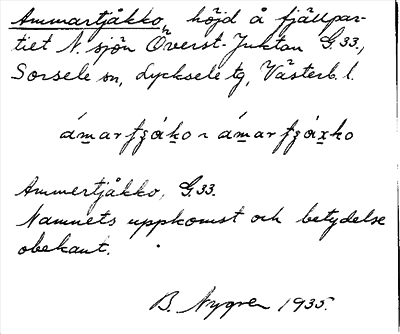 Ammartjåkko, höjd å fjällpar-
tiet N. sjön Överst-Juktan G.33.,
Sorsele sn, Lycksele tg, Västerb. l.
ám̱arfʒáḵo ~ ám̱arfʒáx̱ko
Ammertjåkko, G.33.
Namnets uppkomst och betydelse
obekant.
B. Nygren 1935.